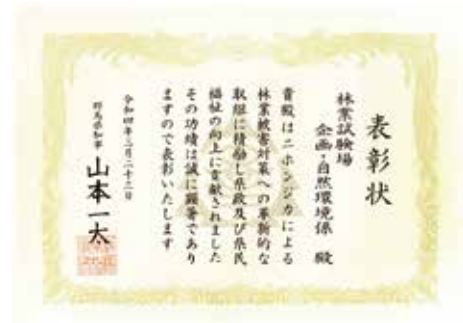 表彰状
林業試験場
企画・自然環境係 殿
貴殿はニホンジカによる
林業被害対策への革新的な
取組に積励し県政及び県民
福祉の向上に貢献されました
その功績は誠に顕著であり
ますので表彰いたします
令和四年三月二十三日
群馬県知事 山本一太